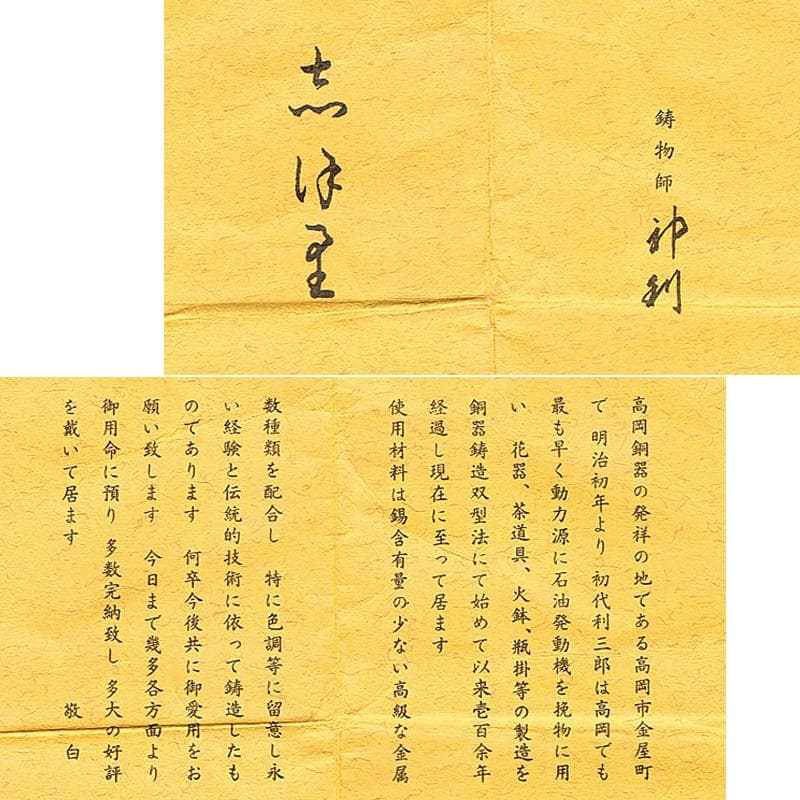 鋳物師 神利
志保里
高岡銅器の発祥の地である高岡市金屋町
で 明治初年より 初代利三郎は高岡でも
最も早く動力源に石油発動機を挽物に用
い 花器、茶道具、火鉢、瓶掛等の製造を
銅器鋳造双型法にて始めて以来壱百余年
経過し現在に至って居ます
使用材料は錫含有量の少ない高級な金属
数種類を配合し 特に色調等に留意し永
い経験と伝統的技術に依って鋳造したも
のであります 何卒今後共に御愛用をお
願い致します 今日まで幾多各方面より
御用命に預り 多数完納致し 多大の好評
を戴いて居ます 敬白